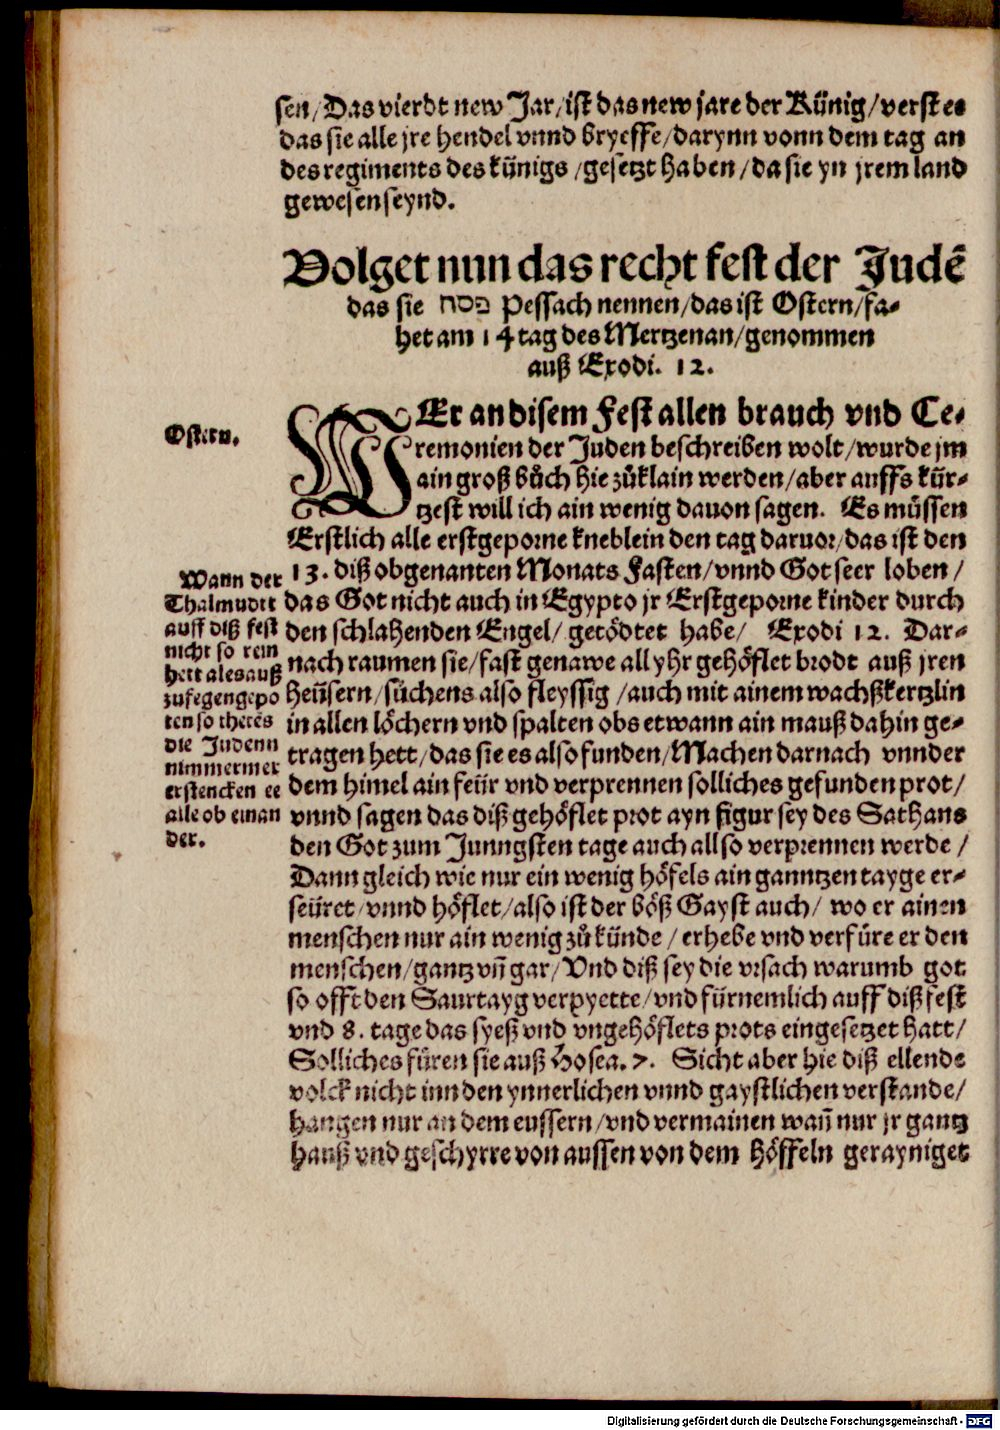 sen/Das vierdt new Jar/ist das new jare der Künig/verst es
das sie alle jre hendel vnnd bryeffe/darynn vonn dem tag an
des regiments des künigs/gesetzt haben/da sie yn jrem land
gewesen seynd.
Volget nun das recht fest der Judē
das sie פסח Pessach nennen/das ist Ostern/fa-
het am 14 tag des Mertzen an/genommen
auß Exodi. 12.
Ostern.
WEr an disem Fest allen brauch vnd Ce-
remonien der Juden beschreiben wolt/wurde jm
ain groß bůch hie zůklain werden/aber auffs kür-
tzest will ich ain wenig dauon sagen. Es müssen
Erstlich alle erstgeporne kneblein den tag daruor/das ist den
13. diß obgenanten Monats Fasten/vnnd Got seer loben/
das Got nicht auch in Egypto jr Erstgeporne kinder durch
den schlahenden Engel/getödtet habe/ Exodi 12. Dar-
nach raumen sie/fast genawe all yhr gehöflet brodt auß jren
heüsern/süchens also fleyssig/auch mit ainem wachßkertzlin
in allen löchern vnd spalten obs etwann ain mauß dahin ge-
tragen hett/das sie es also funden/Machen darnach vnnder
dem himel ain feür vnd verprennen solliches gefunden prot/
vnnd sagen das diß gehöflet prot ayn figur sey des Sathans
den Got zum Junngsten tage auch allso verprennen werde/
Dann gleich wie nur ein wenig höfels ain ganntzen tayge er-
seüret/vnnd höflet/also ist der böß Gayst auch/ wo er ainen
menschen nur ain wenig zů künde/erhebe vnd verfüre er den
menschen/gantz vn̄ gar/Vnd diß sey die vrsach warumb got
so offt den Saurtayg verpyette/vnd fürnemlich auff diß fest
vnd 8. tage das syeß vnd vngehöflets prots eingesetzet hatt/
Solliches füren sie auß Hosea. 7. Sicht aber hie diß ellende
volck nicht inn den ynnerlichen vnnd gaystlichen verstande/
hangen nur an dem eussern/vnd vermainen wan̄ nur jr gantz
hauß vnd geschyrre von aussen von dem höffeln gerayniget
Wann der
Thalmudtt
auff diß fest
nicht so rein
hett ales auß
zufegen gepo
ten so thetēs
die Judenn
nimmermer
erstencken ee
alle ob einan
der.
Digitalisierung gefördert durch die Deutsche Forschungsgemeinschaft - DFG